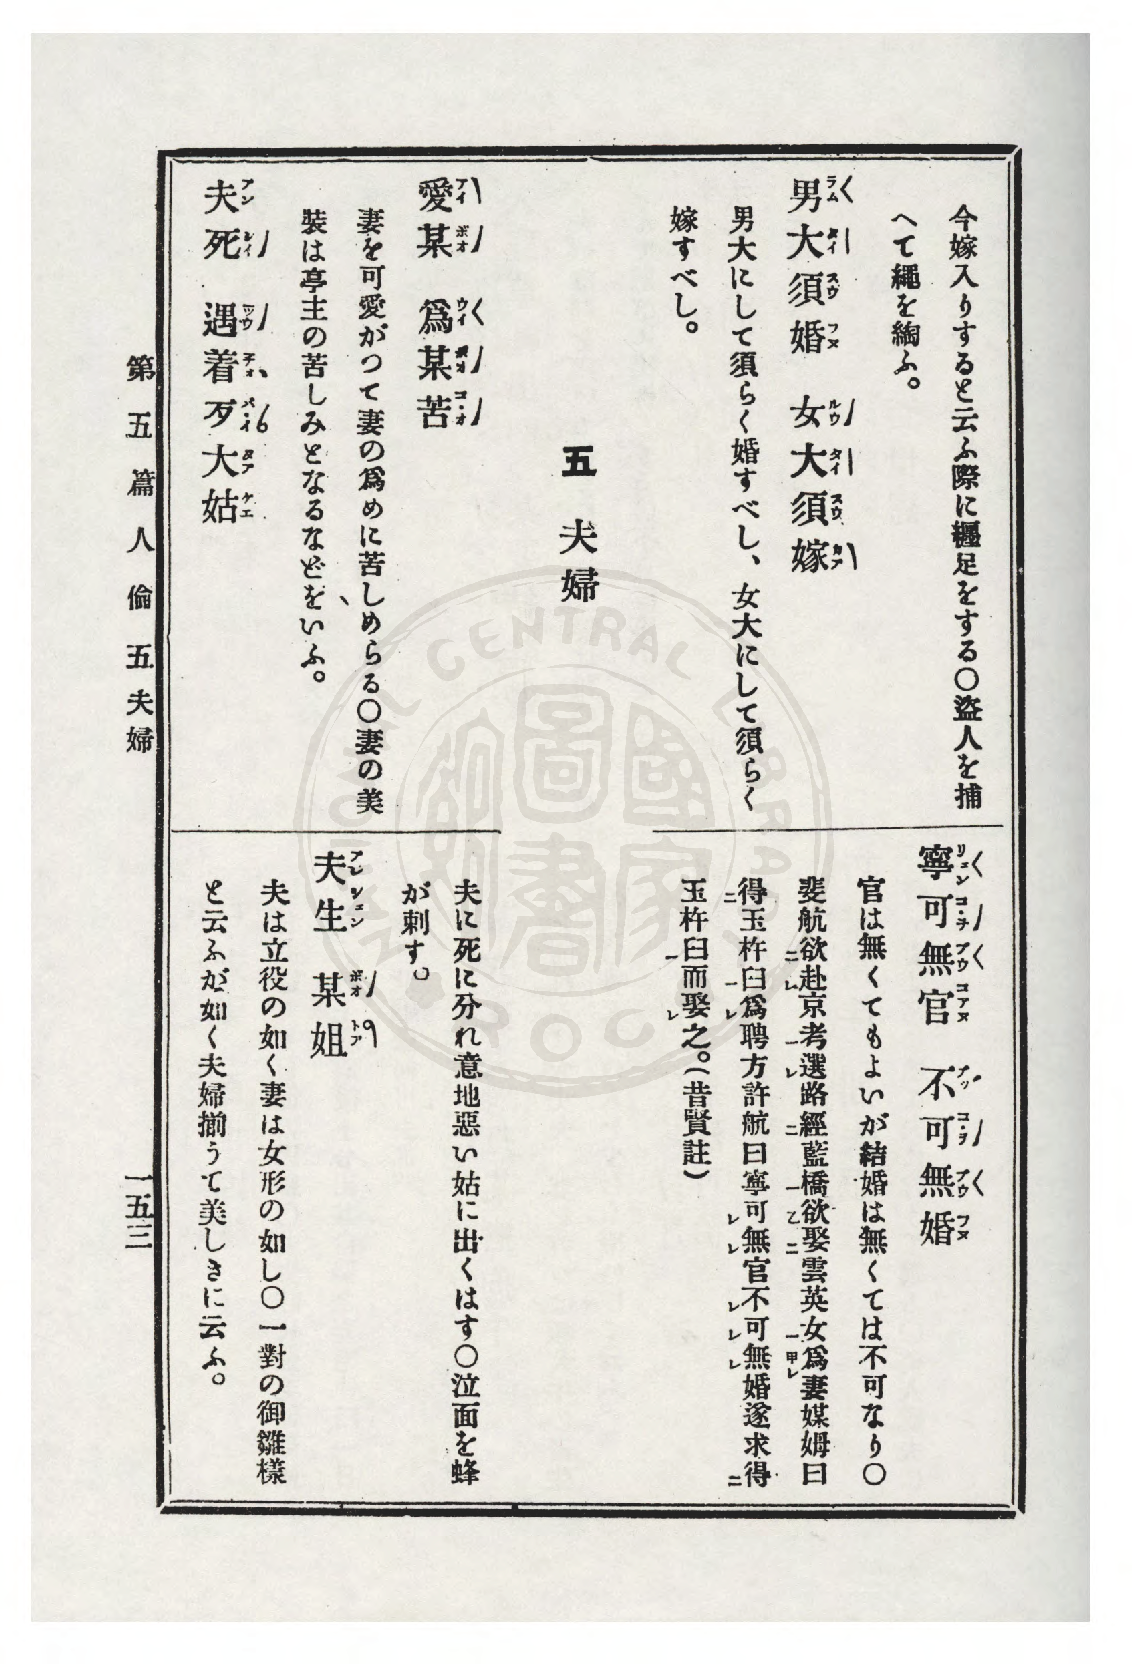 今嫁入りすると云ふ際に纒足をする〇盜人を捕
へて繩を綯ふ。
男大須婚 女大須嫁
ラムタイスウフヌ ルウタイスウカア
男大にして須らく婚すべし、女大にして須らく
嫁すべし。
寧可無官 不可無婚
官は無くてもよいが結婚は無くては不可なり〇
斐航欲赴京考選路經藍橋欲娶雲英女爲妻媒姆曰
得玉杵臼爲聘方許航曰寧可無官不可無婚遂求得
玉杵臼而娶之。(昔賢註)
五 夫婦
愛某 爲某苦
アイボオ ウイボオコ・オ
妻を可愛がつて妻の爲めに苦しめらる〇妻の美
裝は亭主の苦しみとなるなどをいふ。
夫死 遇着歹大姑
夫に死に分れ意地惡い姑に出くはす〇泣面を蜂
が刺す。
夫生 某姐
夫は立役の如く妻は女形の如し〇一對の御雛樣
と云ふが如く夫婦揃うて美しきに云ふ。
第五篇 人倫 五夫婦
一五三
NATIONAL CENTRAL LIBRARY R.O.C.
國家圖書館